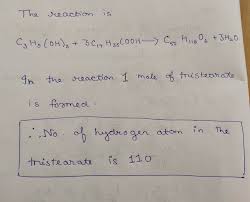 The reaction is
C₃H₅(OH)₃ + 3C₁₇H₃₅COOH ⟶ C₅₇H₁₁₀O₆ + 3H₂O
In the reaction 1 mole of tristearate
is formed.
∴ No. of hydrogen atom in the
tristearate is 110